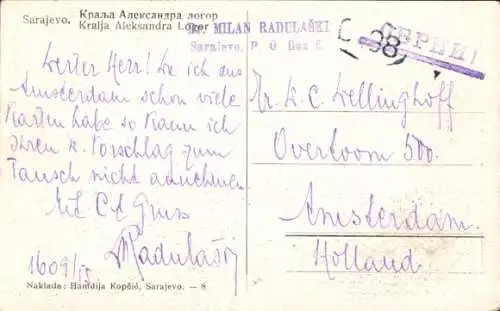 Sarajevo. Краља Александра логор
Kralja Aleksandra Logor
Dr. MILAN RADULAŠKI
Sarajevo. P. O. Box 6.
СВРНИ!
C
38
Werter Herr! Da ich aus
Amsterdam schon viele
Karten habe so kann ich
Ihren w. Vorschlag zum
Tausch nicht annehmen
Mit Gruss
Radulaški
Hr. W. C. Wellinghoff
Overtoom 500.
Amsterdam.
Holland.
Naklada: Hamdija Kopčić, Sarajevo. — 8